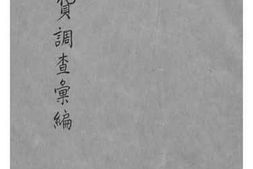 貨調查彙編